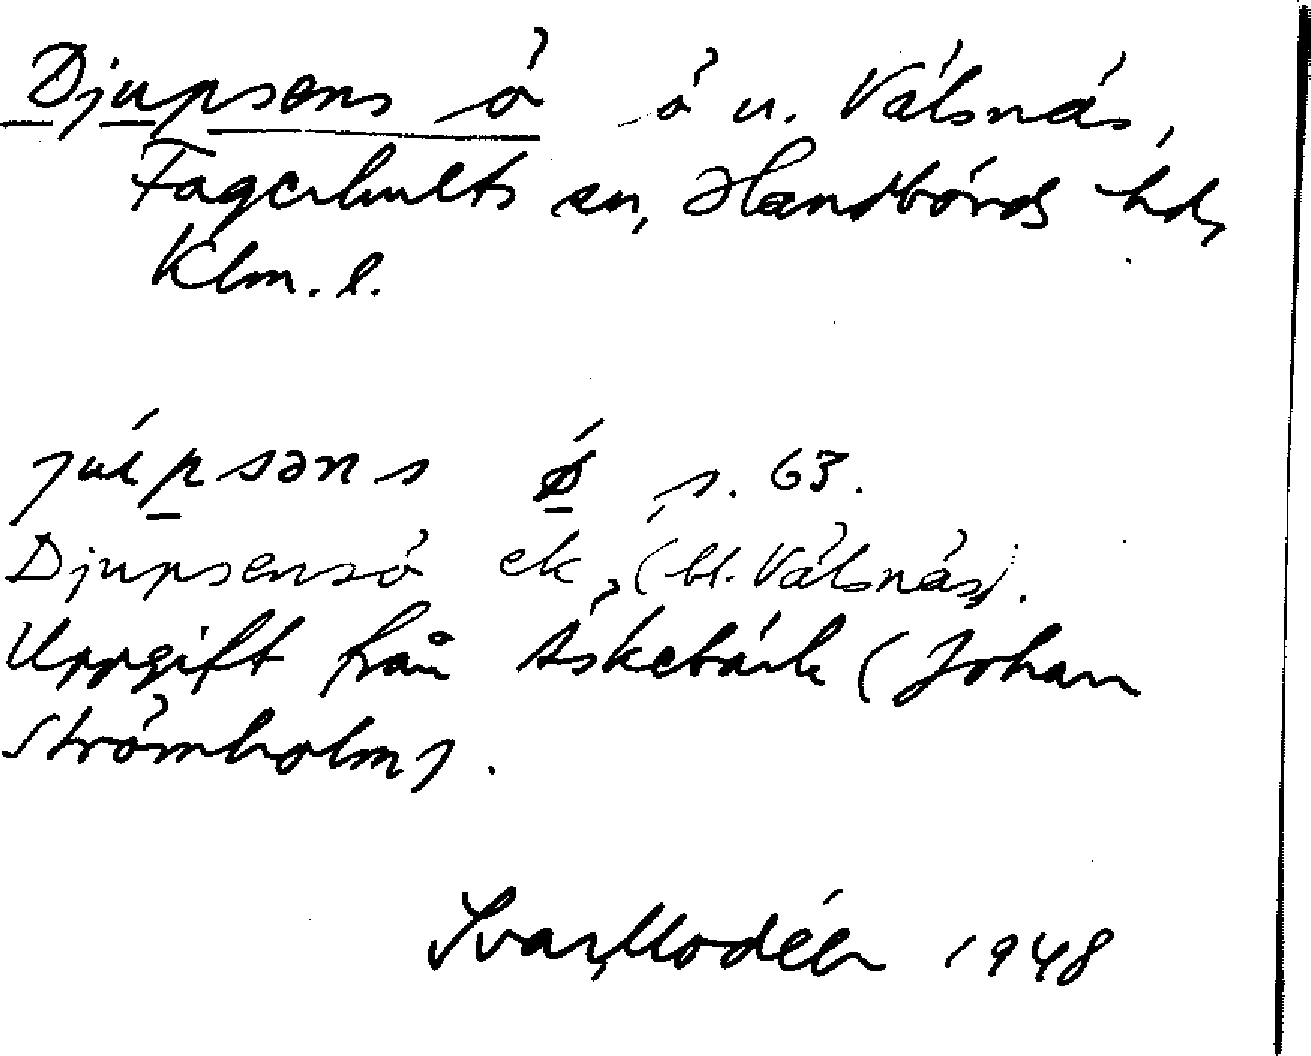 Djupsens ö ö u. Välsnäs,
Fagerhults sn, Handbörds hd,
Klm. l.
júpsəns ǿ s. 63.
Djupsensö ek, (bl. Välsnäs).
Uppgift från Äskebäck (Johan
Strömholm).
Ivar Modéer 1948